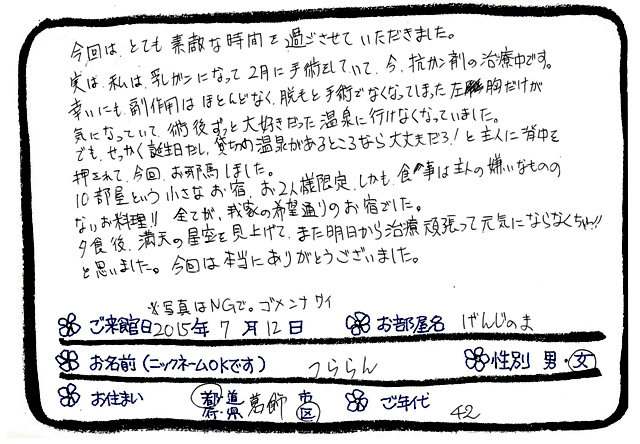 今回は、とても素敵な時間を過ごさせていただきました。
実は、私は、乳ガンになって2月に手術をしていて、今、抗ガン剤の治療中です。
幸いにも、副作用はほとんどなく、脱毛と手術でなくなってしまった左胸だけが
気になっていて、術後ずっと大好きだった温泉に行けなくなっていました。
でも、せっかく誕生日だし、貸切の温泉があるところなら大丈夫だろ!と主人に背中を
押されて、今回、お邪魔しました。
10部屋という小さなお宿、お2人様限定、しかも、食事は主人の嫌いなものの
ないお料理!! 全てが、我家の希望通りのお宿でした。
夕食後、満天の星空を見上げて、また明日から治療頑張って元気にならなくちゃ!!
と思いました。今回は本当にありがとうございました。
※写真はNGで。ゴメンナサイ
ご来館日 2015年 7月 12日 お部屋名 げんじのま
お名前(ニックネームOKです) つららん 性別 男・女
お住まい 都・道・府・県 葛飾 市 区 ご年代 42